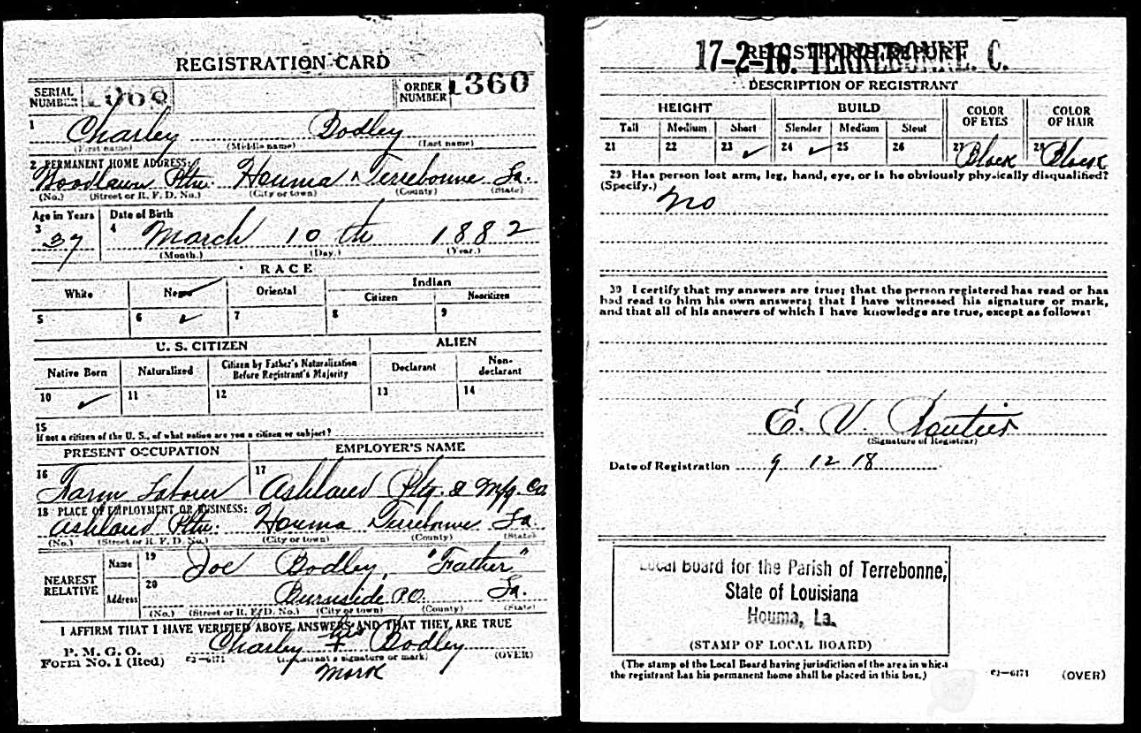 REGISTRATION CARD
SERIAL NUMBER
ORDER NUMBER 1360
1 Charley Bodley
(First name) (Middle name) (Last name)
2 PERMANENT HOME ADDRESS:
Woodlawn Pltn. Houma Terrebonne La.
(No.) (Street or R. F. D. No.) (City or town) (County) (State)
Age in Years Date of Birth
3 37 4 March 10 th 1882
(Month.) (Day.) (Year.)
RACE
White Negro Oriental Indian
Citizen Noncitizen
5 6 ✓ 7 8 9
U. S. CITIZEN ALIEN
Native Born Naturalized Citizen by Father's Naturalization Before Registrant's Majority Declarant Non-declarant
10 ✓ 11 12 13 14
15
If not a citizen of the U. S., of what nation are you a citizen or subject?
PRESENT OCCUPATION EMPLOYER'S NAME
16 Farm Laborer 17 Ashland Pltg. & Mfg. Co
18 PLACE OF EMPLOYMENT OR BUSINESS:
Ashland Pltn. Houma Terrebonne La
(No.) (Street or R. F. D. No.) (City or town) (County) (State)
NEAREST RELATIVE
Name 19 Joe Bodley, "Father"
Address 20 Burnside P.O. La.
(No.) (Street or R. F. D. No.) (City or town) (County) (State)
I AFFIRM THAT I HAVE VERIFIED ABOVE ANSWERS AND THAT THEY ARE TRUE
P. M. G. O.
Form No. 1 (Red) 03—6171 (Registrant's signature or mark) (OVER)
Charley his + Bodley
mark
17-2-16. TERREBONNE. C.
DESCRIPTION OF REGISTRANT
HEIGHT BUILD COLOR OF EYES COLOR OF HAIR
Tall Medium Short Slender Medium Stout
21 22 23 ✓ 24 ✓ 25 26 27 Black 28 Black
29 Has person lost arm, leg, hand, eye, or is he obviously physically disqualified?
(Specify.) no
30 I certify that my answers are true; that the person registered has read or has
had read to him his own answers; that I have witnessed his signature or mark,
and that all of his answers of which I have knowledge are true, except as follows:
E. V.
(Signature of Registrar)
Date of Registration 9 12 18
Local Board for the Parish of Terrebonne,
State of Louisiana
Houma, La.
(STAMP OF LOCAL BOARD)
(The stamp of the Local Board having jurisdiction of the area in which
the registrant has his permanent home shall be placed in this box.)
03—6171 (OVER)